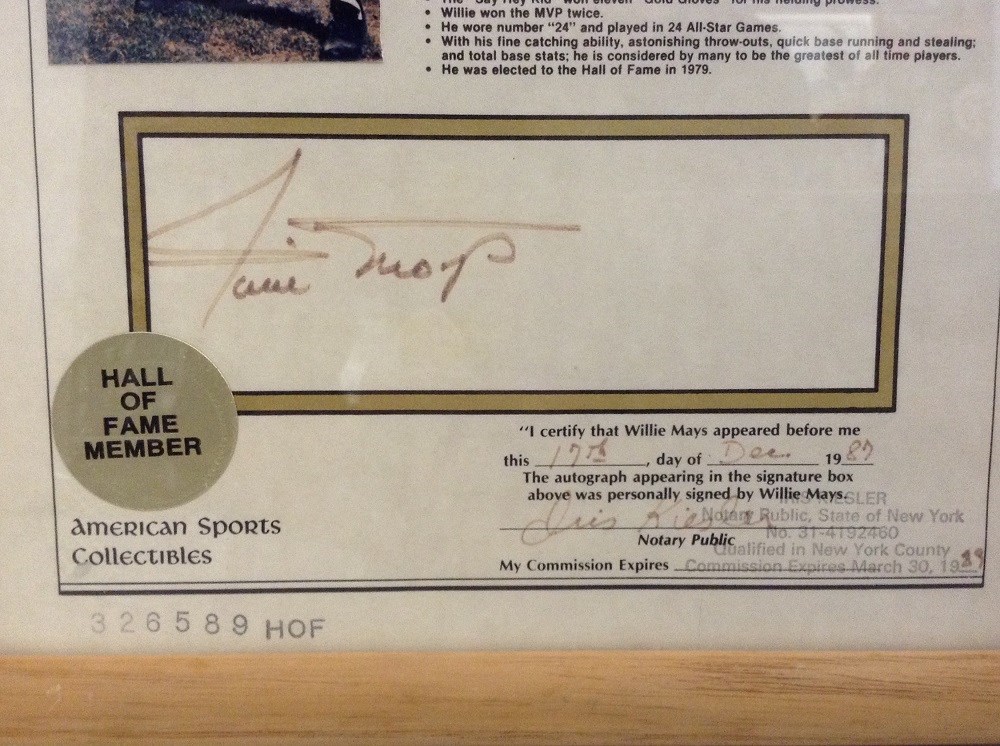 The "Say Hey Kid" won eleven "Gold Gloves" for his fielding prowess.
• Willie won the MVP twice.
• He wore number "24" and played in 24 All-Star Games.
• With his fine catching ability, astonishing throw-outs, quick base running and stealing;
and total base stats; he is considered by many to be the greatest of all time players.
• He was elected to the Hall of Fame in 1979.
Willie Mays
HALL
OF
FAME
MEMBER
American Sports
Collectibles
"I certify that Willie Mays appeared before me
this 17th, day of Dec. 1987
The autograph appearing in the signature box
above was personally signed by Willie Mays.
Iris Kiesler
Notary Public
My Commission Expires
IRIS KIESLER
Notary Public, State of New York
No. 31-4192460
Qualified in New York County
Commission Expires March 30, 1989
326589 HOF